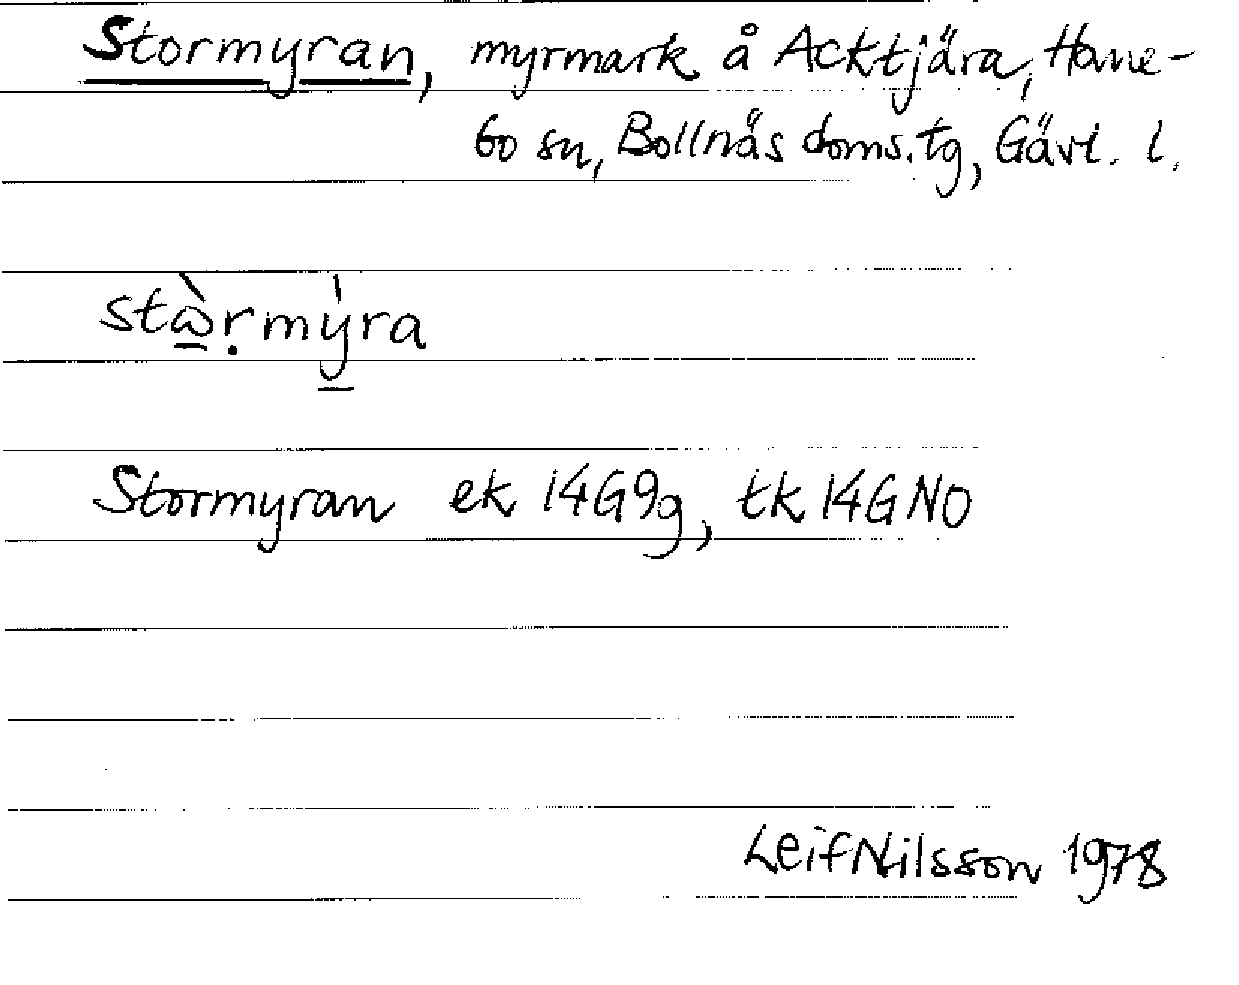 Stormyran, myrmark å Acktjära, Hane-
bo sn, Bollnäs doms.tg, Gävl. l.
stɷ̀ṛmý̲ra
Stormyran ek 14G9g, tk 14GNO
Leif Nilsson 1978